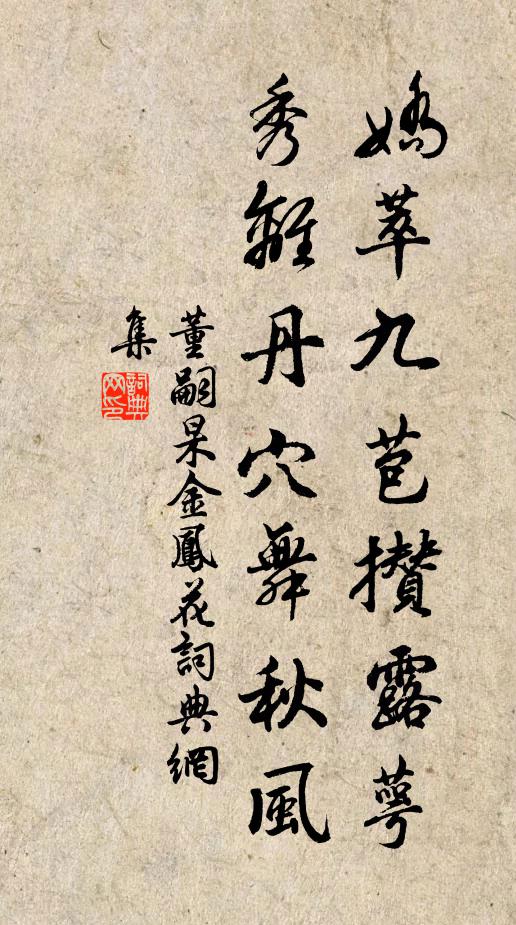 嬌萃九苞攢露萼
秀離丹穴舞秋風
董嗣杲金鳳花詞典網
集
詞典網印